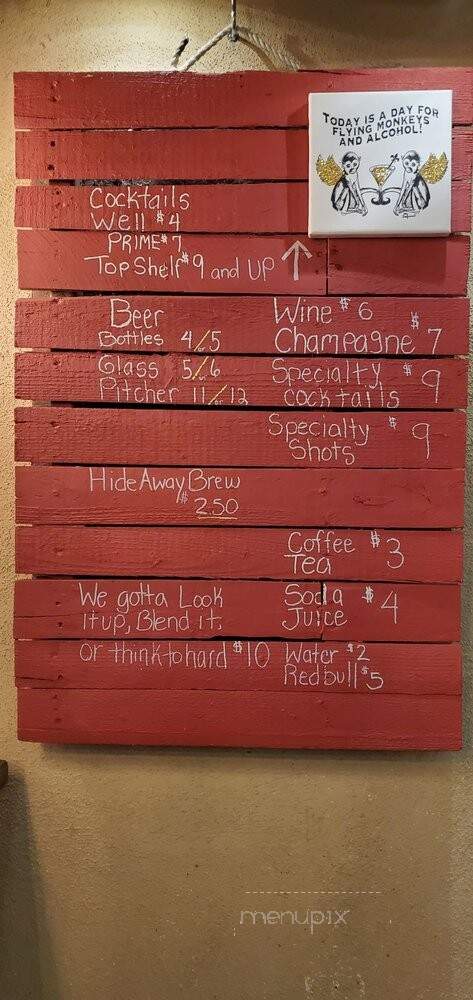 TODAY IS A DAY FOR
FLYING MONKEYS
AND ALCOHOL!
Cocktails
Well $4
PRIME $7
Top Shelf $9 and UP
Beer
Bottles 4/5
Glass 5/6
Pitcher 11/12
Wine $6
Champagne $7
Specialty
cocktails $9
Specialty
Shots $9
HideAway Brew
$2.50
Coffee $3
Tea
We gotta Look
it up, Blend it.
or think to hard $10
Soda $4
Juice
Water $2
Redbull $5
menupix